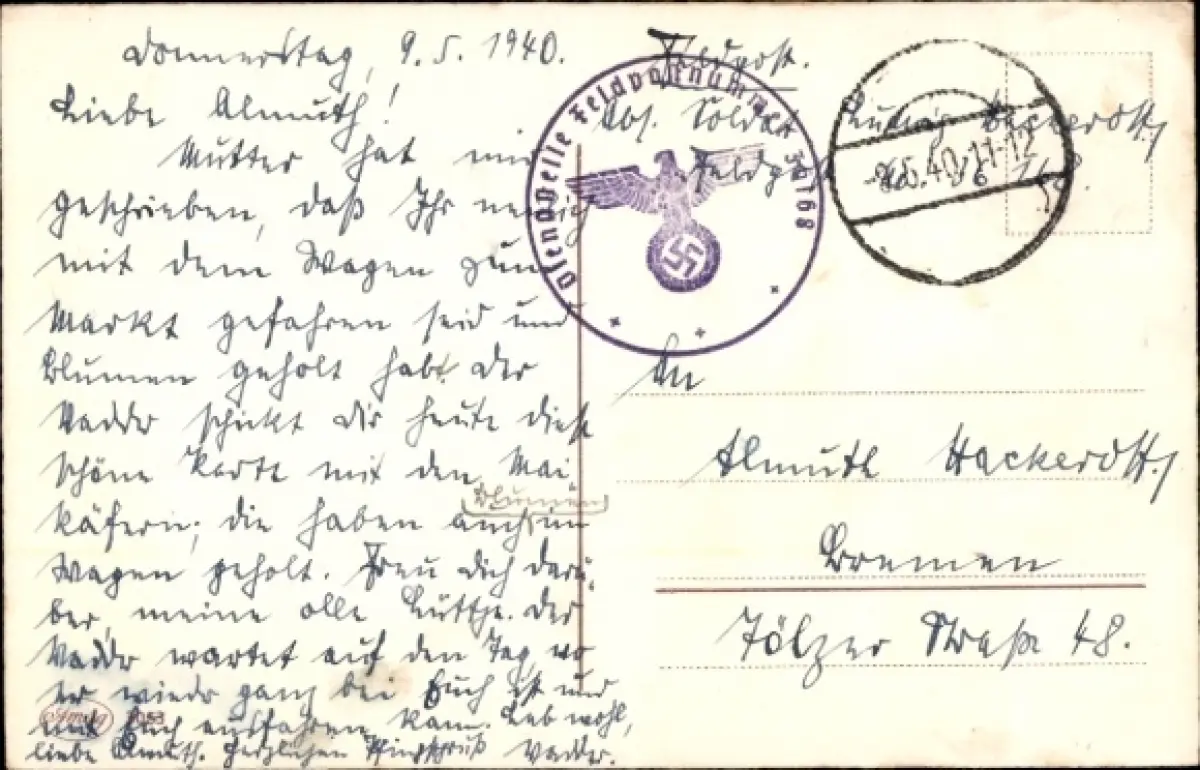 Donnerstag, 9.5.1940.
Liebe Almuth!
Mutter hat mir
geschrieben, daß Ihr neulich
mit dem Wagen zum
Markt gefahren seid und
Blumen geholt habt. Der
Vadder schickt Dir heute diese
schöne Karte mit den Mai-
käfern; die haben auch Blumen im
Wagen geholt. Freu Dich darü-
ber, meine olle Lüttje. Der
Vaddr wartet auf den Tag, wo
er wieder ganz bei Euch ist und
mit Euch ausfahren kann. Leb wohl,
liebe Almuth. Herzlichen Pfingstgruß Vadder.
Amag
Feldpost.
Abs. Soldat Ludwig Hackerott,
Feldpost
Feldpostnummer
.5.40.11-12
An
Almuth Hackerott,
Bremen
Tölzer Straße 48.